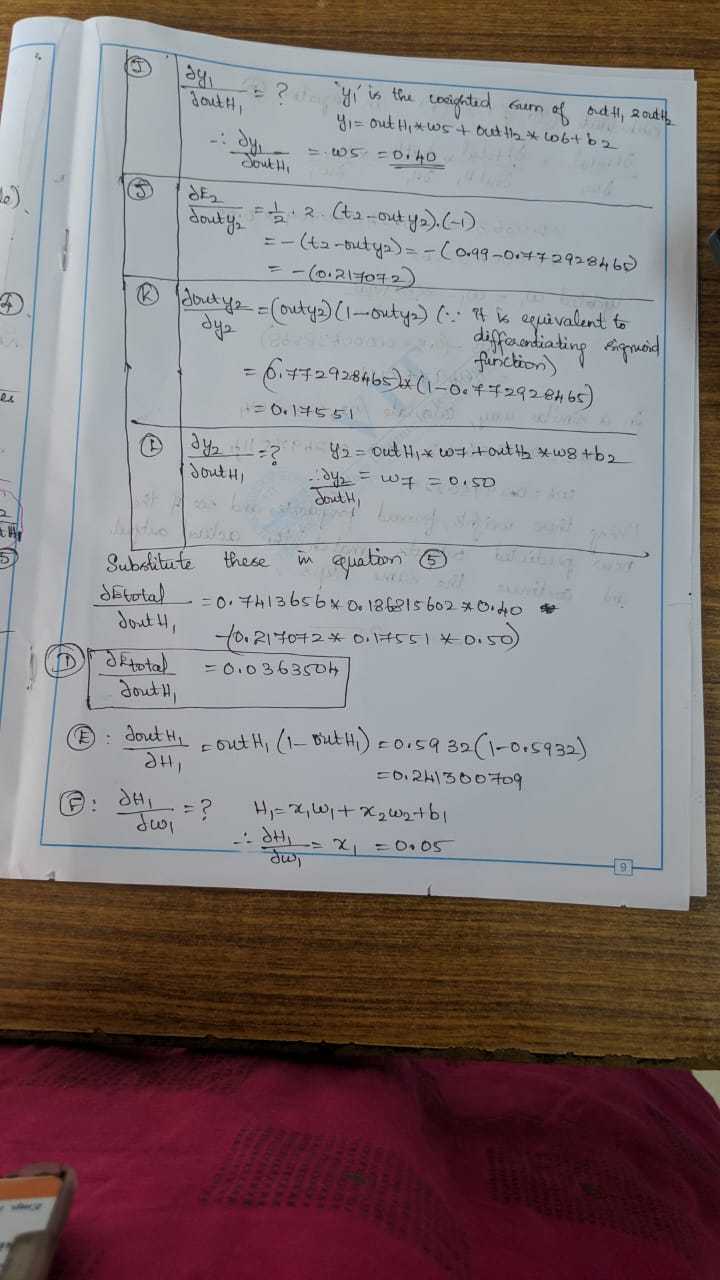 J ∂y₁/∂outH₁ = ? 'y₁' is the weighted sum of outH₁ & outH₂
y₁ = outH₁ * w5 + outH₂ * w6 + b₂
∴ ∂y₁/∂outH₁ = w5 = 0.40
J ∂E₂/∂outy₂ = 1/2 . 2 (t₂ - outy₂).(-1)
= -(t₂ - outy₂) = -(0.99 - 0.772928465)
= -(0.217072)
K ∂outy₂/∂y₂ = (outy₂)(1 - outy₂) (∵ It is equivalent to
differentiating sigmoid
function)
= (0.772928465) * (1 - 0.772928465)
= 0.17551
L ∂y₂/∂outH₁ = ? y₂ = outH₁ * w7 + outH₂ * w8 + b₂
∴ ∂y₂/∂outH₁ = w7 = 0.50
Substitute these in equation 5
∂Etotal/∂outH₁ = 0.7413656 * 0.186815602 * 0.40
-(0.217072 * 0.17551 * 0.50)
D ∂Etotal/∂outH₁ = 0.0363504
E : ∂outH₁/∂H₁ = outH₁ (1 - outH₁) = 0.5932 (1 - 0.5932)
= 0.241300709
F : ∂H₁/∂w₁ = ? H₁ = x₁w₁ + x₂w₂ + b₁
∴ ∂H₁/∂w₁ = x₁ = 0.05
9